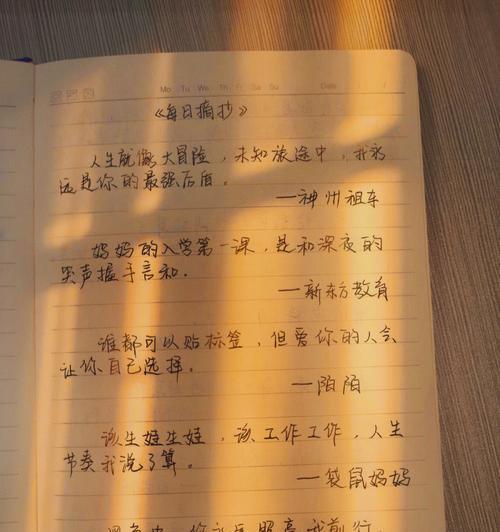 Mo Tu We Th Fr Sa Su Date
《每日摘抄》
人生就像大冒险，未知旅途中，我永
远是你的最强后盾。
—神州租车
妈妈的入学第一课，是和深夜的
哭声握手言和.
—新东方教育
谁都可以贴标签，但爱你的人会
让你自己选择。
—陌陌
该生娃生娃，该工作工作，人生
节奏我说了算。
—袋鼠妈妈
你永远照亮我前行